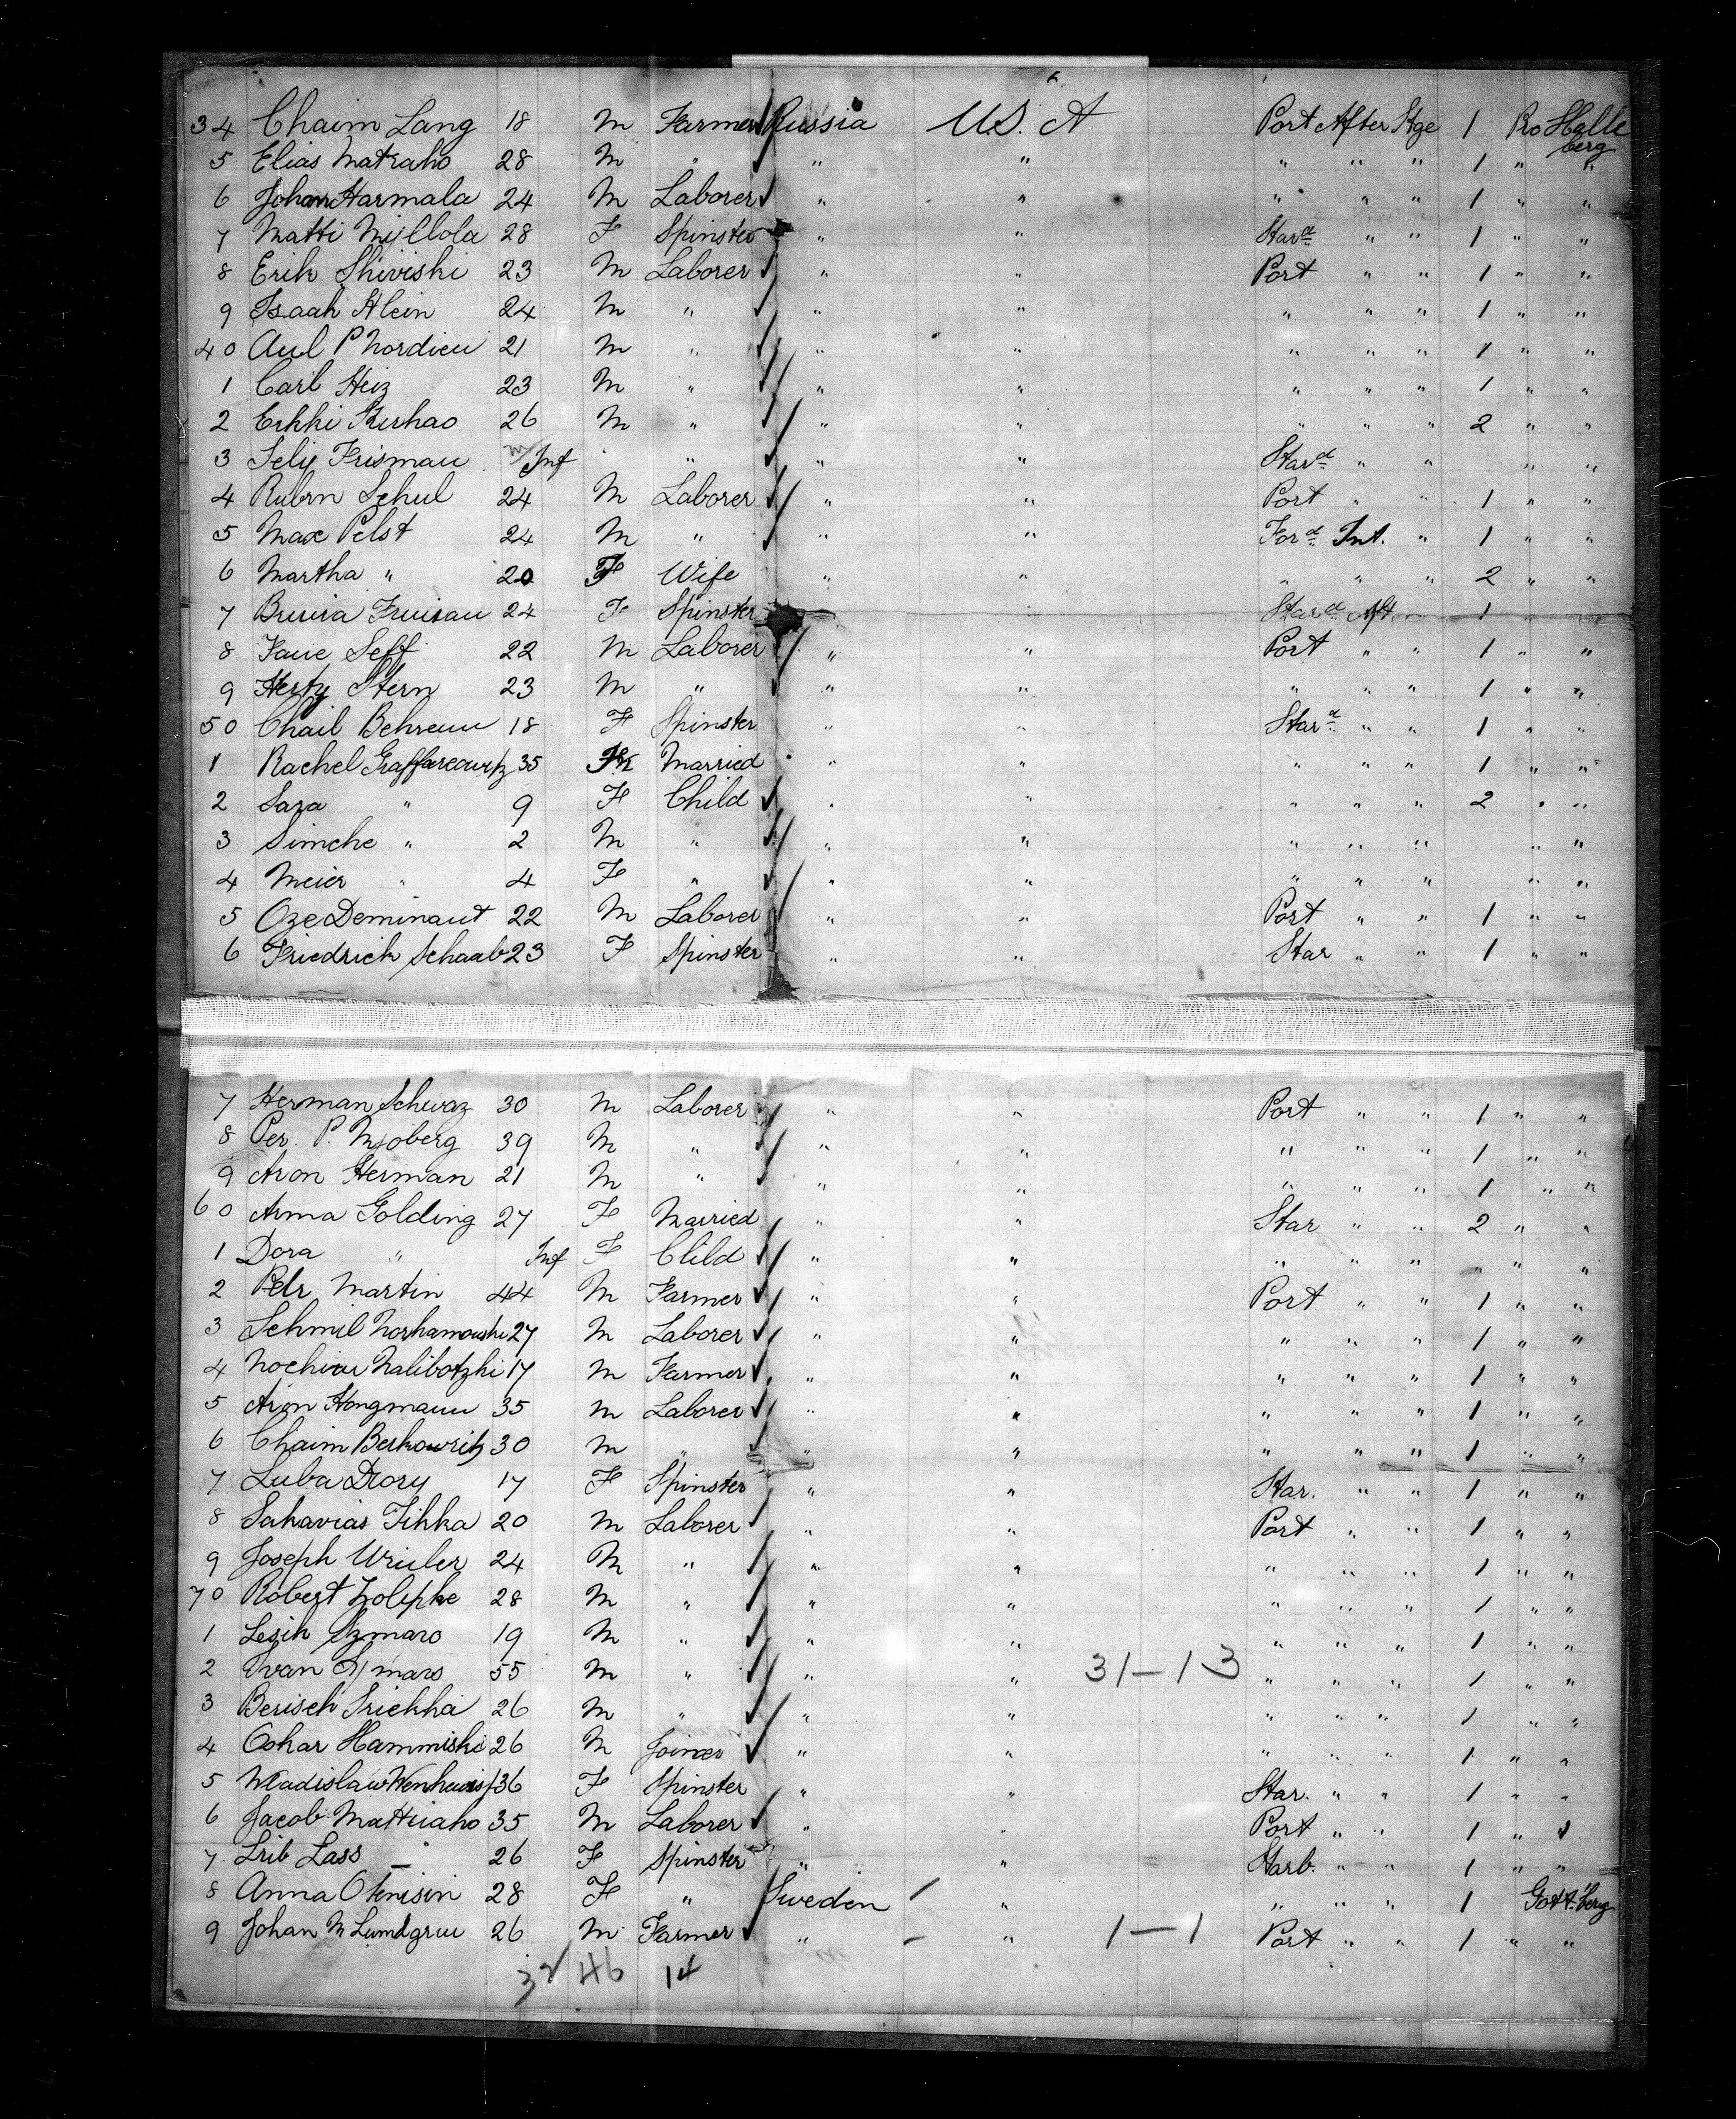 34 Chaim Lang 18 M Farmer Russia U.S.A Port After Stge 1 Ro Halle berg
5 Elias Matraho 28 M " " " " " " 1 " "
6 Johan Harmala 24 M Laborer " " " " " 1 " "
7 Matti Myllola 28 F Spinster " " Stard " " 1 " "
8 Erik Shiviski 23 M Laborer " " Port " " 1 " "
9 Isaak Klein 24 M " " " " " " 1 " "
40 Aul P Nordieu 21 M " " " " " " 1 " "
1 Carl Heiz 23 M " " " " " " 1 " "
2 Erkki Kerhao 26 M " " " " " " 2 " "
3 Selig Frisman Inf " " " Stard " " " "
4 Rubrn Schul 24 M Laborer " " Port " " 1 " "
5 Max Pelst 24 M " " " Ford Int. " 1 " "
6 Martha " 20 F Wife " " " " " 2 " "
7 24 F Spinster " " Stard Aft " 1 " "
8 Seff 22 M Laborer " " Port " " 1 " "
9 Herty Stern 23 M " " " " " " 1 " "
50 Chail 18 F Spinster " " Stard " " 1 " "
1 Rachel 35 Married " " " " " 1 " "
2 Sara " 9 F Child " " " " " 2 " "
3 Simche " 2 M " " " " " " " "
4 Meier " 4 F " " " " " " " "
5 Oze Deminaut 22 M Laborer " " Port " " 1 " "
6 Friedrich Schaab 23 F Spinster " " Star " " 1 " "
7 Herman Schwaz 30 M Laborer " " Port " " 1 " "
8 Per. P. Mjoberg 39 M " " " " " " 1 " "
9 Aron Herman 21 M " " " " " " 1 " "
60 Anna Golding 27 F Married " " Star " " 2 " "
1 Dora " Inf F Child " " " " " " "
2 Petr Martin 44 M Farmer " " Port " " 1 " "
3 Schmil 27 M Laborer " " " " " 1 " "
4 Nalibotzki 17 M Farmer " " " " " 1 " "
5 Aron Hongmann 35 M Laborer " " " " " 1 " "
6 Chaim Berkowritz 30 M " " " " " " 1 " "
7 Luba Drory 17 F Spinster " " Star. " " 1 " "
8 Sahavias Tihka 20 M Laborer " " Port " " 1 " "
9 Joseph 24 M " " " " " " 1 " "
70 Robert 28 M " " " " " " 1 " "
1 19 M " " " " " " 1 " "
2 Ivan 55 M " " " 31-13 " " " 1 " "
3 Berisch 26 M " " " " " " 1 " "
4 Oskar Hammiski 26 M Joiner " " " " " 1 " "
5 Wladislaw 36 F Spinster " " Star. " " 1 " "
6 Jacob Mattiaho 35 M Laborer " " Port " " 1 " "
7 Lrib Lass 26 F Spinster " " Starb. " " 1 " "
8 Anna Otenisin 28 F " Sweden " " " " 1 Gott.berg
9 Johan M Lundgren 26 M Farmer " " 1-1 Port " " 1 " "
32 46 14